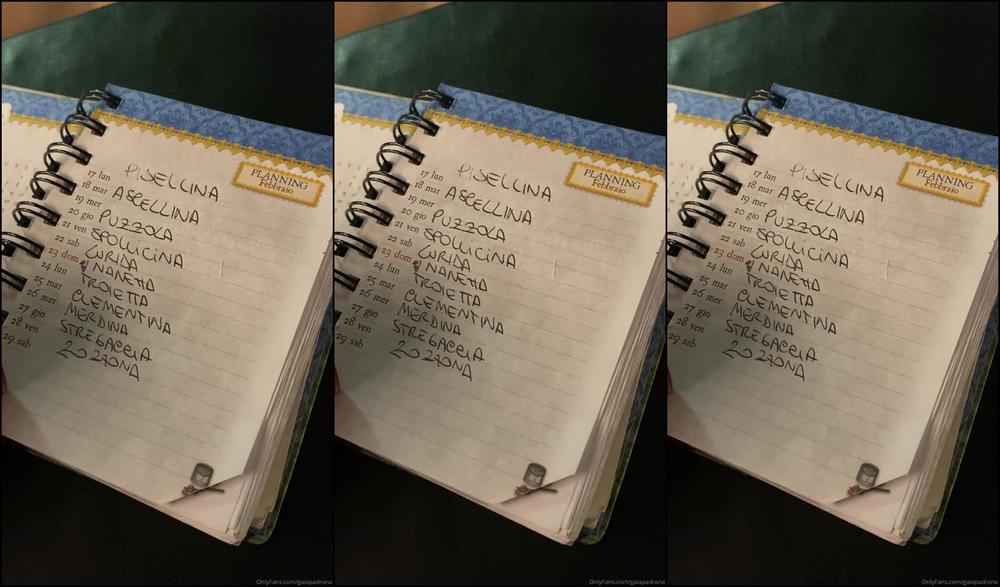 PLANNING
Febbraio
17 lun PISELLINA
18 mar ASCELLINA
19 mer
20 gio PUZZOLA
21 ven SPOLLICINA
22 sab LURIDA
23 dom NANETTA
24 lun TROIETTA
25 mar CLEMENTINA
26 mer MERDINA
27 gio STREGACCIA
28 ven ZOZZONA
29 sab
OnlyFans.com/gaiapadrona
PLANNING
Febbraio
17 lun PISELLINA
18 mar ASCELLINA
19 mer
20 gio PUZZOLA
21 ven SPOLLICINA
22 sab LURIDA
23 dom NANETTA
24 lun TROIETTA
25 mar CLEMENTINA
26 mer MERDINA
27 gio STREGACCIA
28 ven ZOZZONA
29 sab
OnlyFans.com/gaiapadrona
PLANNING
Febbraio
17 lun PISELLINA
18 mar ASCELLINA
19 mer
20 gio PUZZOLA
21 ven SPOLLICINA
22 sab LURIDA
23 dom NANETTA
24 lun TROIETTA
25 mar CLEMENTINA
26 mer MERDINA
27 gio STREGACCIA
28 ven ZOZZONA
29 sab
OnlyFans.com/gaiapadrona